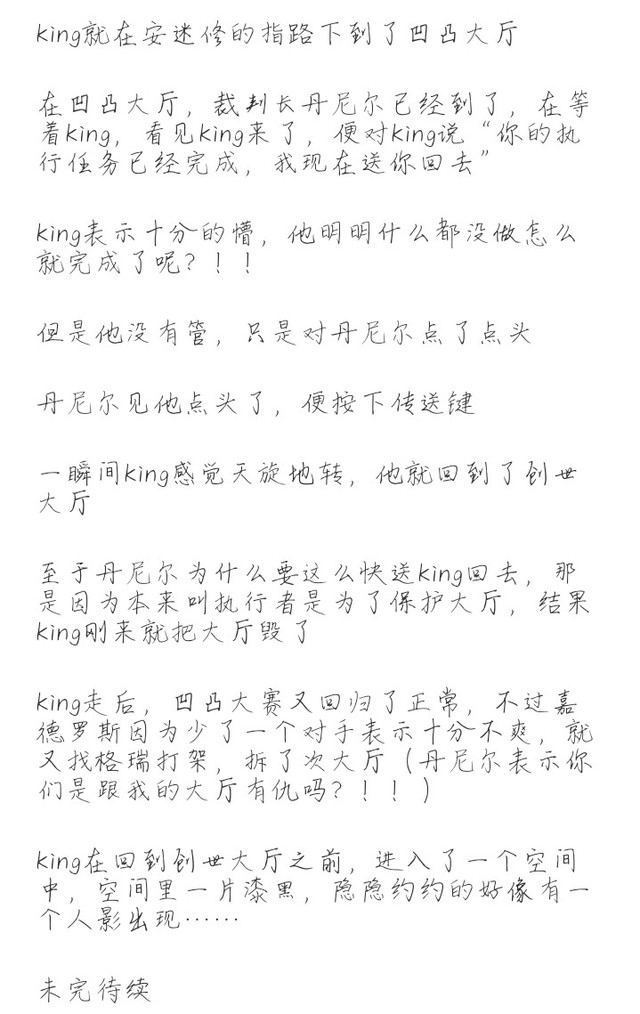 king就在安迷修的指路下到了凹凸大厅
在凹凸大厅，裁判长丹尼尔已经到了，在等
着king，看见king来了，便对king说“你的执
行任务已经完成，我现在送你回去”
king表示十分的懵，他明明什么都没做怎么
就完成了呢？！！
但是他没有管，只是对丹尼尔点了点头
丹尼尔见他点头了，便按下传送键
一瞬间king感觉天旋地转，他就回到了创世
大厅
至于丹尼尔为什么要这么快送king回去，那
是因为本来叫执行者是为了保护大厅，结果
king刚来就把大厅毁了
king走后，凹凸大赛又回归了正常，不过嘉
德罗斯因为少了一个对手表示十分不爽，就
又找格瑞打架，拆了次大厅（丹尼尔表示你
们是跟我的大厅有仇吗？！！）
king在回到创世大厅之前，进入了一个空间
中，空间里一片漆黑，隐隐约约的好像有一
个人影出现……
未完待续